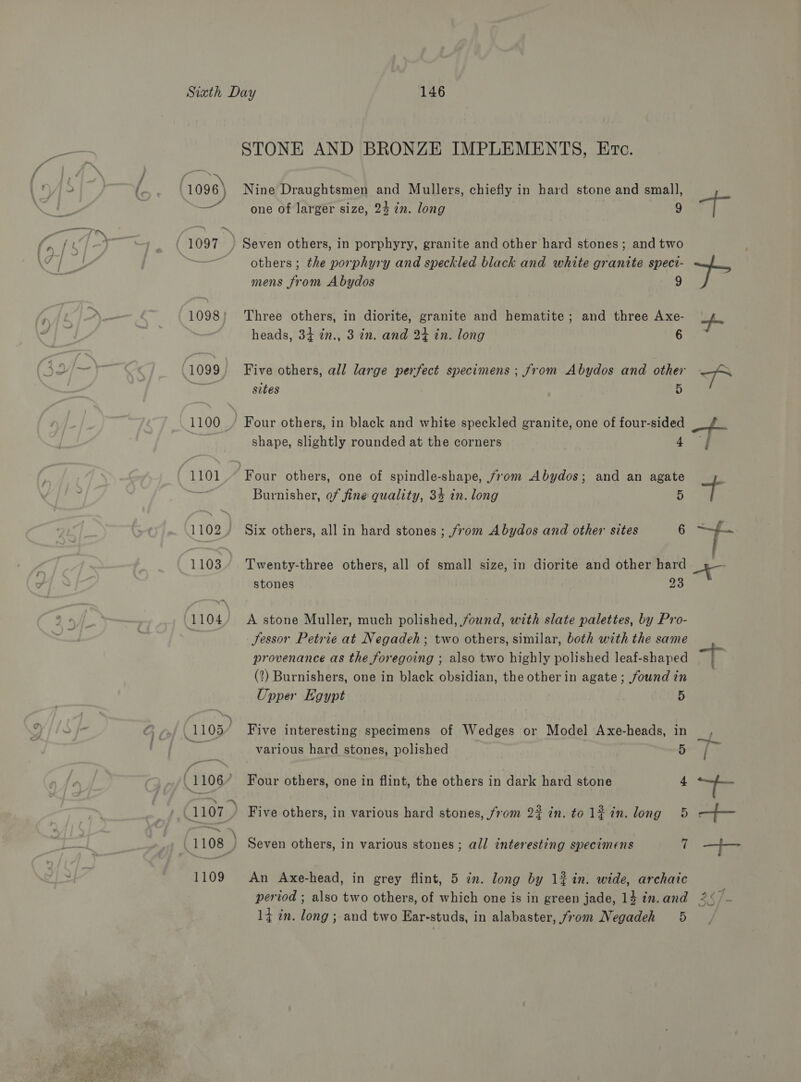 Sixth Day 146
STONE AND BRONZE IMPLEMENTS, Etc.
1096 Nine Draughtsmen and Mullers, chiefly in hard stone and small,
one of larger size, 2½ in. long 9
1097 Seven others, in porphyry, granite and other hard stones; and two
others; the porphyry and speckled black and white granite speci-
mens from Abydos 9
1098 Three others, in diorite, granite and hematite; and three Axe-
heads, 3¼ in., 3 in. and 2¼ in. long 6
1099 Five others, all large perfect specimens; from Abydos and other
sites 5
1100 Four others, in black and white speckled granite, one of four-sided
shape, slightly rounded at the corners 4
1101 Four others, one of spindle-shape, from Abydos; and an agate
Burnisher, of fine quality, 3½ in. long 5
1102 Six others, all in hard stones; from Abydos and other sites 6
1103 Twenty-three others, all of small size, in diorite and other hard
stones 23
1104 A stone Muller, much polished, found, with slate palettes, by Pro-
fessor Petrie at Negadeh; two others, similar, both with the same
provenance as the foregoing; also two highly polished leaf-shaped
(?) Burnishers, one in black obsidian, the other in agate; found in
Upper Egypt 5
1105 Five interesting specimens of Wedges or Model Axe-heads, in
various hard stones, polished 5
1106 Four others, one in flint, the others in dark hard stone 4
1107 Five others, in various hard stones, from 2¾ in. to 1¾ in. long 5
1108 Seven others, in various stones; all interesting specimens 7
1109 An Axe-head, in grey flint, 5 in. long by 1¾ in. wide, archaic
period; also two others, of which one is in green jade, 1½ in. and
1¼ in. long; and two Ear-studs, in alabaster, from Negadeh 5